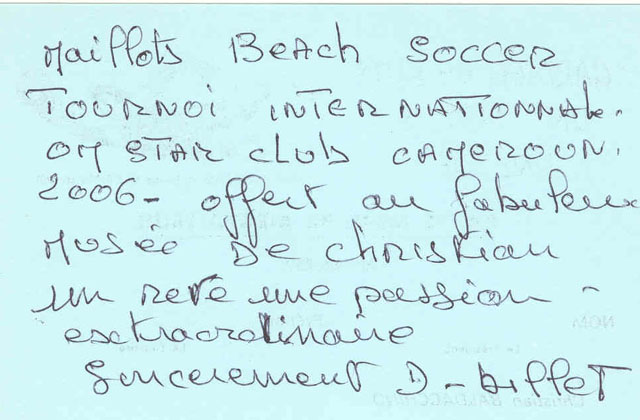 Maillots Beach SOCCER
TOURNOI INTERNATIONNAL.
OM STAR club CAMEROUN.
2006- offert au fabuleux
Musée De christian
un reve une passion -
esxtraordinaire
Sincerement D-